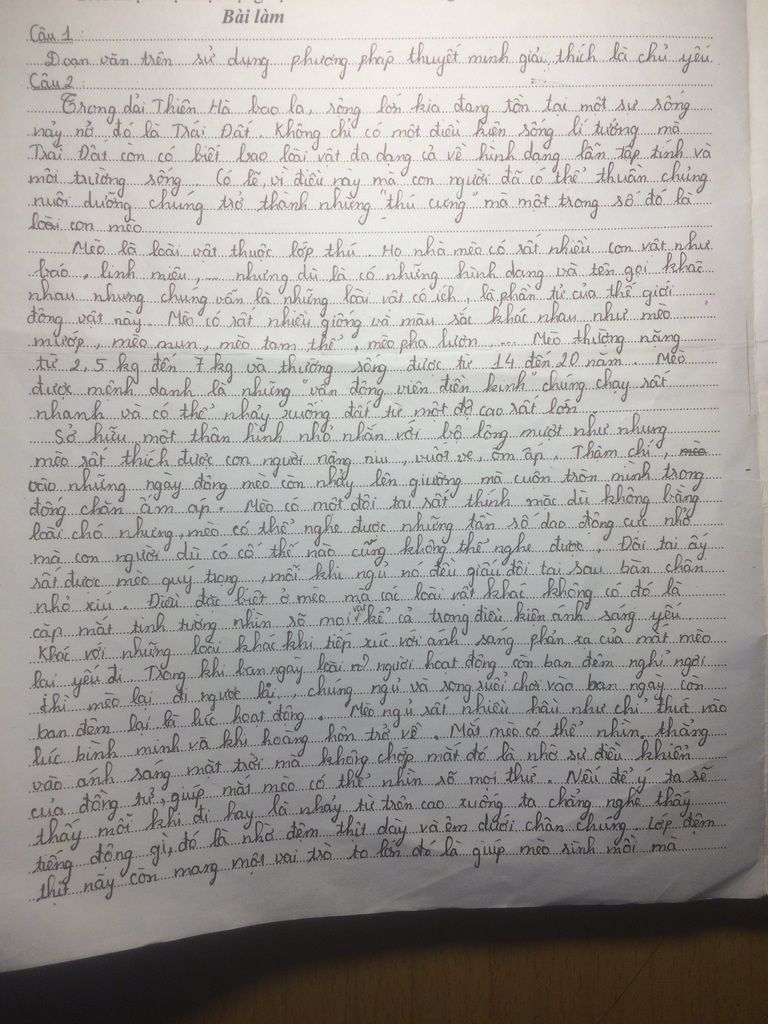 Bài làm
Câu 1:
Đoạn văn trên sử dụng phương pháp thuyết minh giải thích là chủ yếu.
Câu 2:
Trong dải Thiên Hà bao la, rộng lớn kia đang tồn tại một sự sống
nảy nở đó là Trái Đất. Không chỉ có một điều kiện sống lí tưởng mà
Trái Đất còn có biết bao loài vật đa dạng cả về hình dạng lẫn tập tính và
môi trường sống. Có lẽ, vì điều này mà con người đã có thể thuần chủng
nuôi dưỡng chúng trở thành những "thú cưng" mà một trong số đó là
loài con mèo.
Mèo là loài vật thuộc lớp thú. Họ nhà mèo có rất nhiều con vật như
báo, linh miêu, ... nhưng dù là có những hình dạng và tên gọi khác
nhau nhưng chúng vẫn là những loài vật có ích, là phần tử của thế giới
động vật này. Mèo có rất nhiều giống và màu sắc khác nhau như mèo
mướp, mèo mun, mèo tam thể, mèo pha lươn, ... Mèo thường nặng
từ 2,5 kg đến 7 kg và thường sống được từ 14 đến 20 năm. Mèo
được mệnh danh là những "vận động viên điền kinh" chúng chạy rất
nhanh và có thể nhảy xuống đất từ một độ cao rất lớn.
Sở hữu một thân hình nhỏ nhắn với bộ lông mượt như nhung
mèo rất thích được con người nâng niu, vuốt ve, ôm ấp. Thậm chí, mèo
vào những ngày đông mèo còn nhảy lên giường mà cuộn tròn mình trong
đống chăn ấm áp. Mèo có một đôi tai rất thính mặc dù không bằng
loài chó nhưng mèo có thể nghe được những tần số dao động cực nhỏ
mà con người dù có cố thế nào cũng không thể nghe được. Đôi tai ấy
rất được mèo quý trọng, mỗi khi ngủ nó đều giấu đôi tai sau bàn chân
nhỏ xíu. Điều đặc biệt ở mèo mà các loài vật khác không có đó là
cặp mắt tinh tường nhìn rõ mọi vật kể cả trong điều kiện ánh sáng yếu.
Khác với những loài khác khi tiếp xúc với ánh sáng phản xạ của mắt mèo
lại yếu đi. Trong khi ban ngày loài người hoạt động còn ban đêm nghỉ ngơi
thì mèo lại đi ngược lại, chúng ngủ và rong ruổi chơi vào ban ngày còn
ban đêm lại là lúc hoạt động. Mèo ngủ rất nhiều hầu như chỉ thức vào
lúc bình minh và khi hoàng hôn trở về. Mắt mèo có thể nhìn thẳng
vào ánh sáng mặt trời mà không chớp mắt đó là nhờ sự điều khiển
của đồng tử, giúp mắt mèo có thể nhìn rõ mọi thứ. Nếu để ý ta sẽ
thấy mỗi khi đi hay là nhảy từ trên cao xuống ta chẳng nghe thấy
tiếng động gì, đó là nhờ đệm thịt dày và êm dưới chân chúng. Lớp đệm
thịt này còn mang một vai trò to lớn đó là giúp mèo rình mồi mà